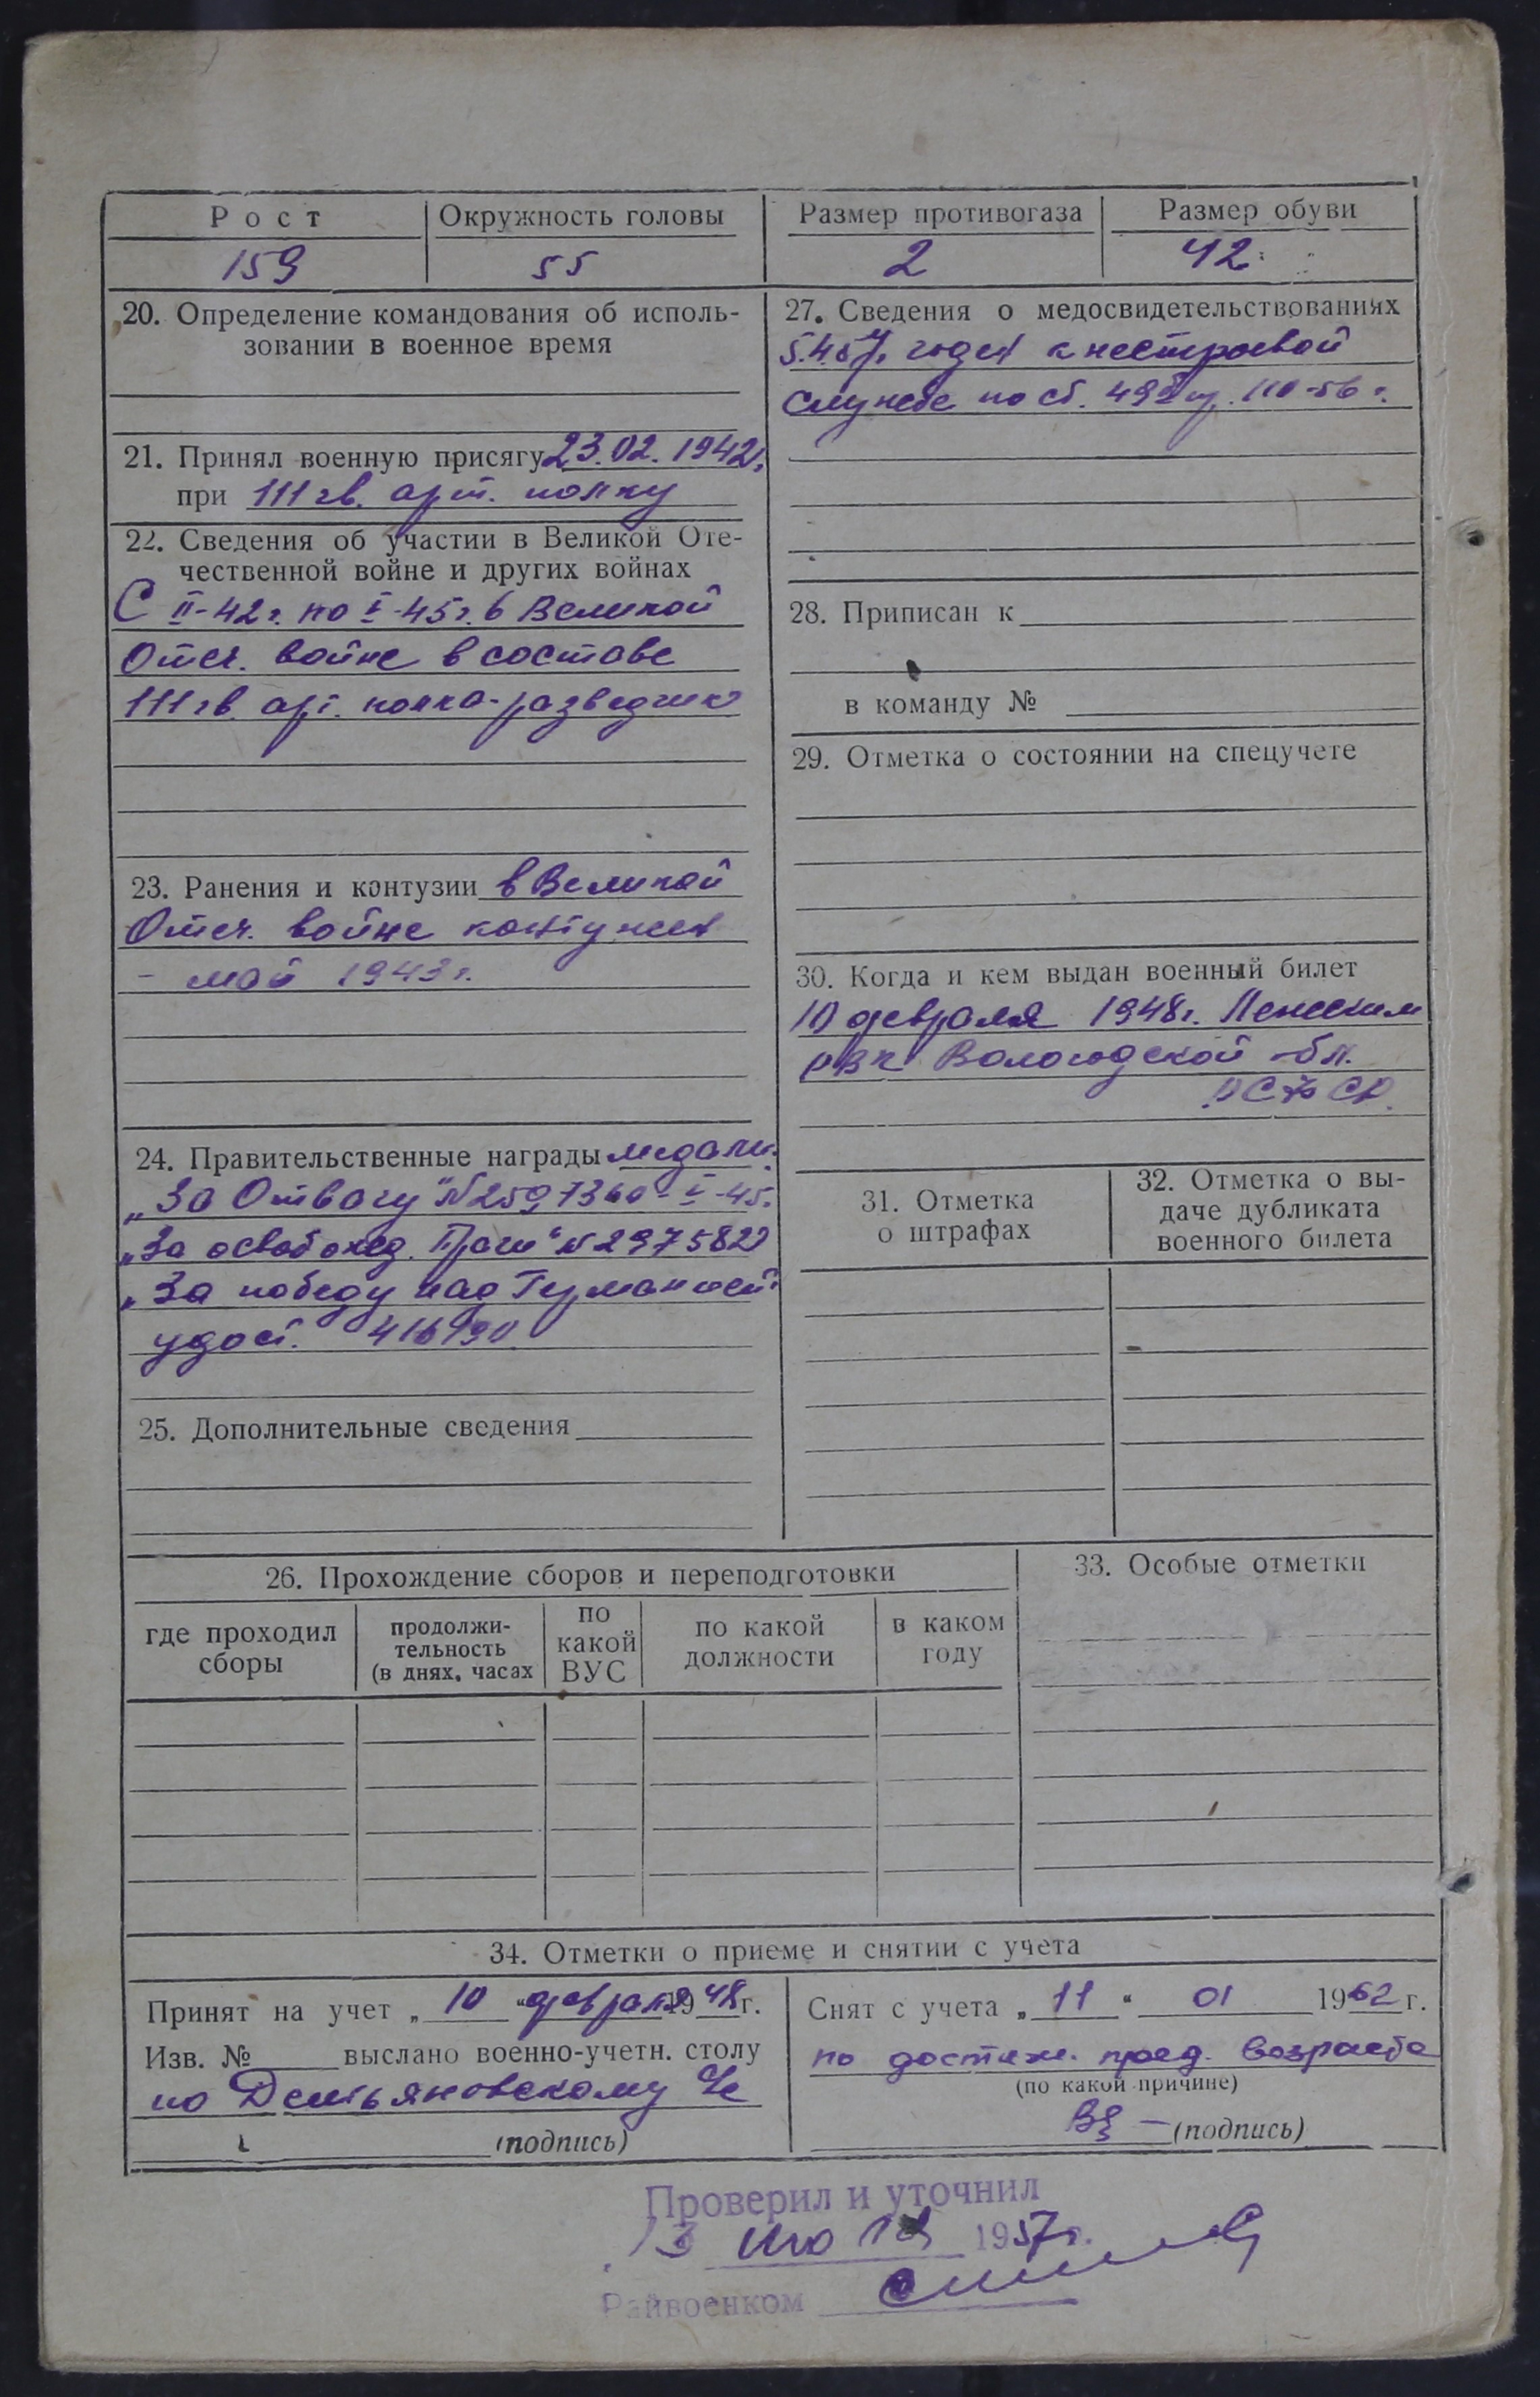 Рост
Окружность головы
Размер противогаза
Размер обуви
159
55
2
42
20. Определение командования об исполь-
зовании в военное время
21. Принял военную присягу 23.02.1942г.
при 111 гв. арт. полку
22. Сведения об участии в Великой Оте-
чественной войне и других войнах
С II-42г. по V-45г. в Великой
Отеч. войне в составе
111 гв. арт. полка-разведчик
23. Ранения и контузии в Великой
Отеч. войне контужен
- май 1943г.
24. Правительственные награды медали:
„За Отвагу" № 2597360 - V-45.
„За освобожд. Праги" № 297582
„За победу над Германией"
удост. 416190
25. Дополнительные сведения
27. Сведения о медосвидетельствованиях
5.4.57г. годен к нестроевой
службе по ст. 49 пр. 110-56г.
28. Приписан к
в команду №
29. Отметка о состоянии на спецучете
30. Когда и кем выдан военный билет
10 февраля 1948г.
РВК Вологодской обл.
РСФСР.
31. Отметка
о штрафах
32. Отметка о вы-
даче дубликата
военного билета
26. Прохождение сборов и переподготовки
где проходил
сборы
продолжи-
тельность
(в днях, часах
по
какой
ВУС
по какой
должности
в каком
году
33. Особые отметки
34. Отметки о приеме и снятии с учета
Принят на учет „10" февраля 1948г.
Изв. № выслано военно-учетн. столу
по Демьяновскому
(подпись)
Снят с учета „11" 01 1962г.
по достиж. пред. возраста
(по какой причине)
(подпись)
Проверил и уточнил
13 1957г.
Райвоенком